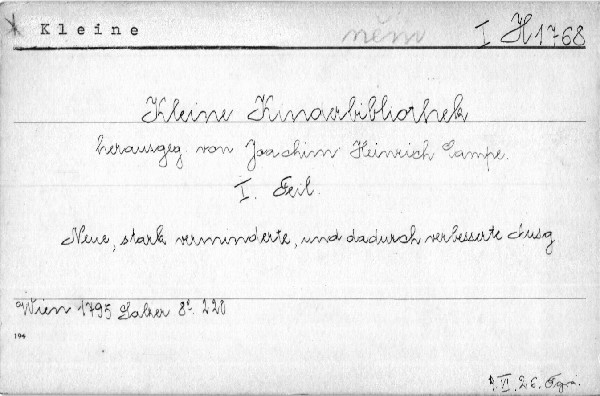 Kleine něm I H 1768
Kleine Kinderbibliothek
herausgeg. von Joachim Heinrich Campe.
I. Teil.
Neue, stark verminderte, und dadurch verbesserte Ausg
Wien 1795 8°. 220
194
VI. 26.